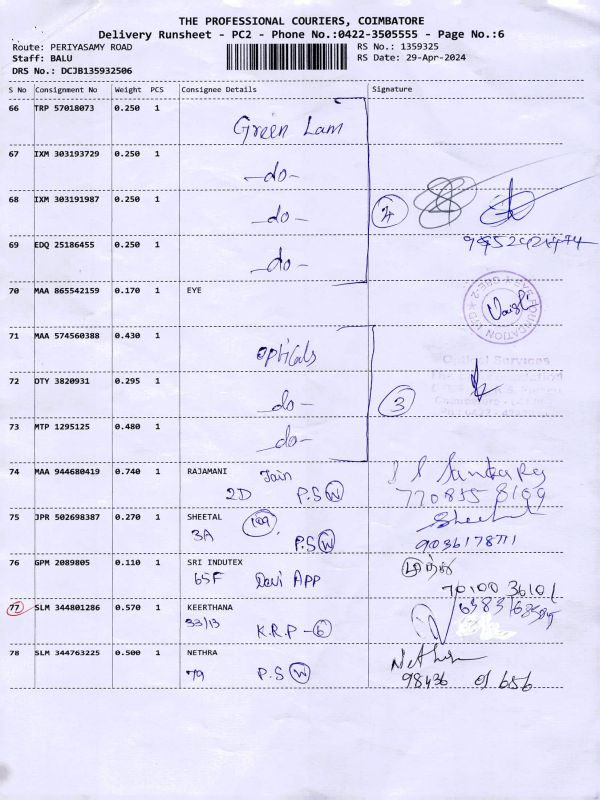 THE PROFESSIONAL COURIERS, COIMBATORE
Delivery Runsheet - PC2 - Phone No.:0422-3505555 - Page No.:6
Route: PERIYASAMY ROAD
RS No.: 1359325
Staff: BALU
RS Date: 29-Apr-2024
DRS No.: DCJB135932506
S No Consignment No Weight PCS Consignee Details Signature
66 TRP 57018073 0.250 1
Green Lam
67 IXM 303193729 0.250 1
-do-
68 IXM 303191987 0.250 1
-do-
4
69 EDQ 25186455 0.250 1
-do-
70 MAA 865542159 0.170 1 EYE
71 MAA 574560388 0.430 1
opticals
Optical Services
72 DTY 3820931 0.295 1
-do-
3
73 MTP 1295125 0.480 1
-do-
74 MAA 944680419 0.740 1 RAJAMANI Jain
2D P.S W
75 JPR 502698387 0.270 1 SHEETAL
3A P.S W
Sheetal
9036178711
76 GPM 2089805 0.110 1 SRI INDUTEX
65F Devi APP
70100 36101
77 SLM 344801286 0.570 1 KEERTHANA
33/13
K.R.P - 6
78 SLM 344763225 0.500 1 NETHRA
79 P.S W
98436 01656